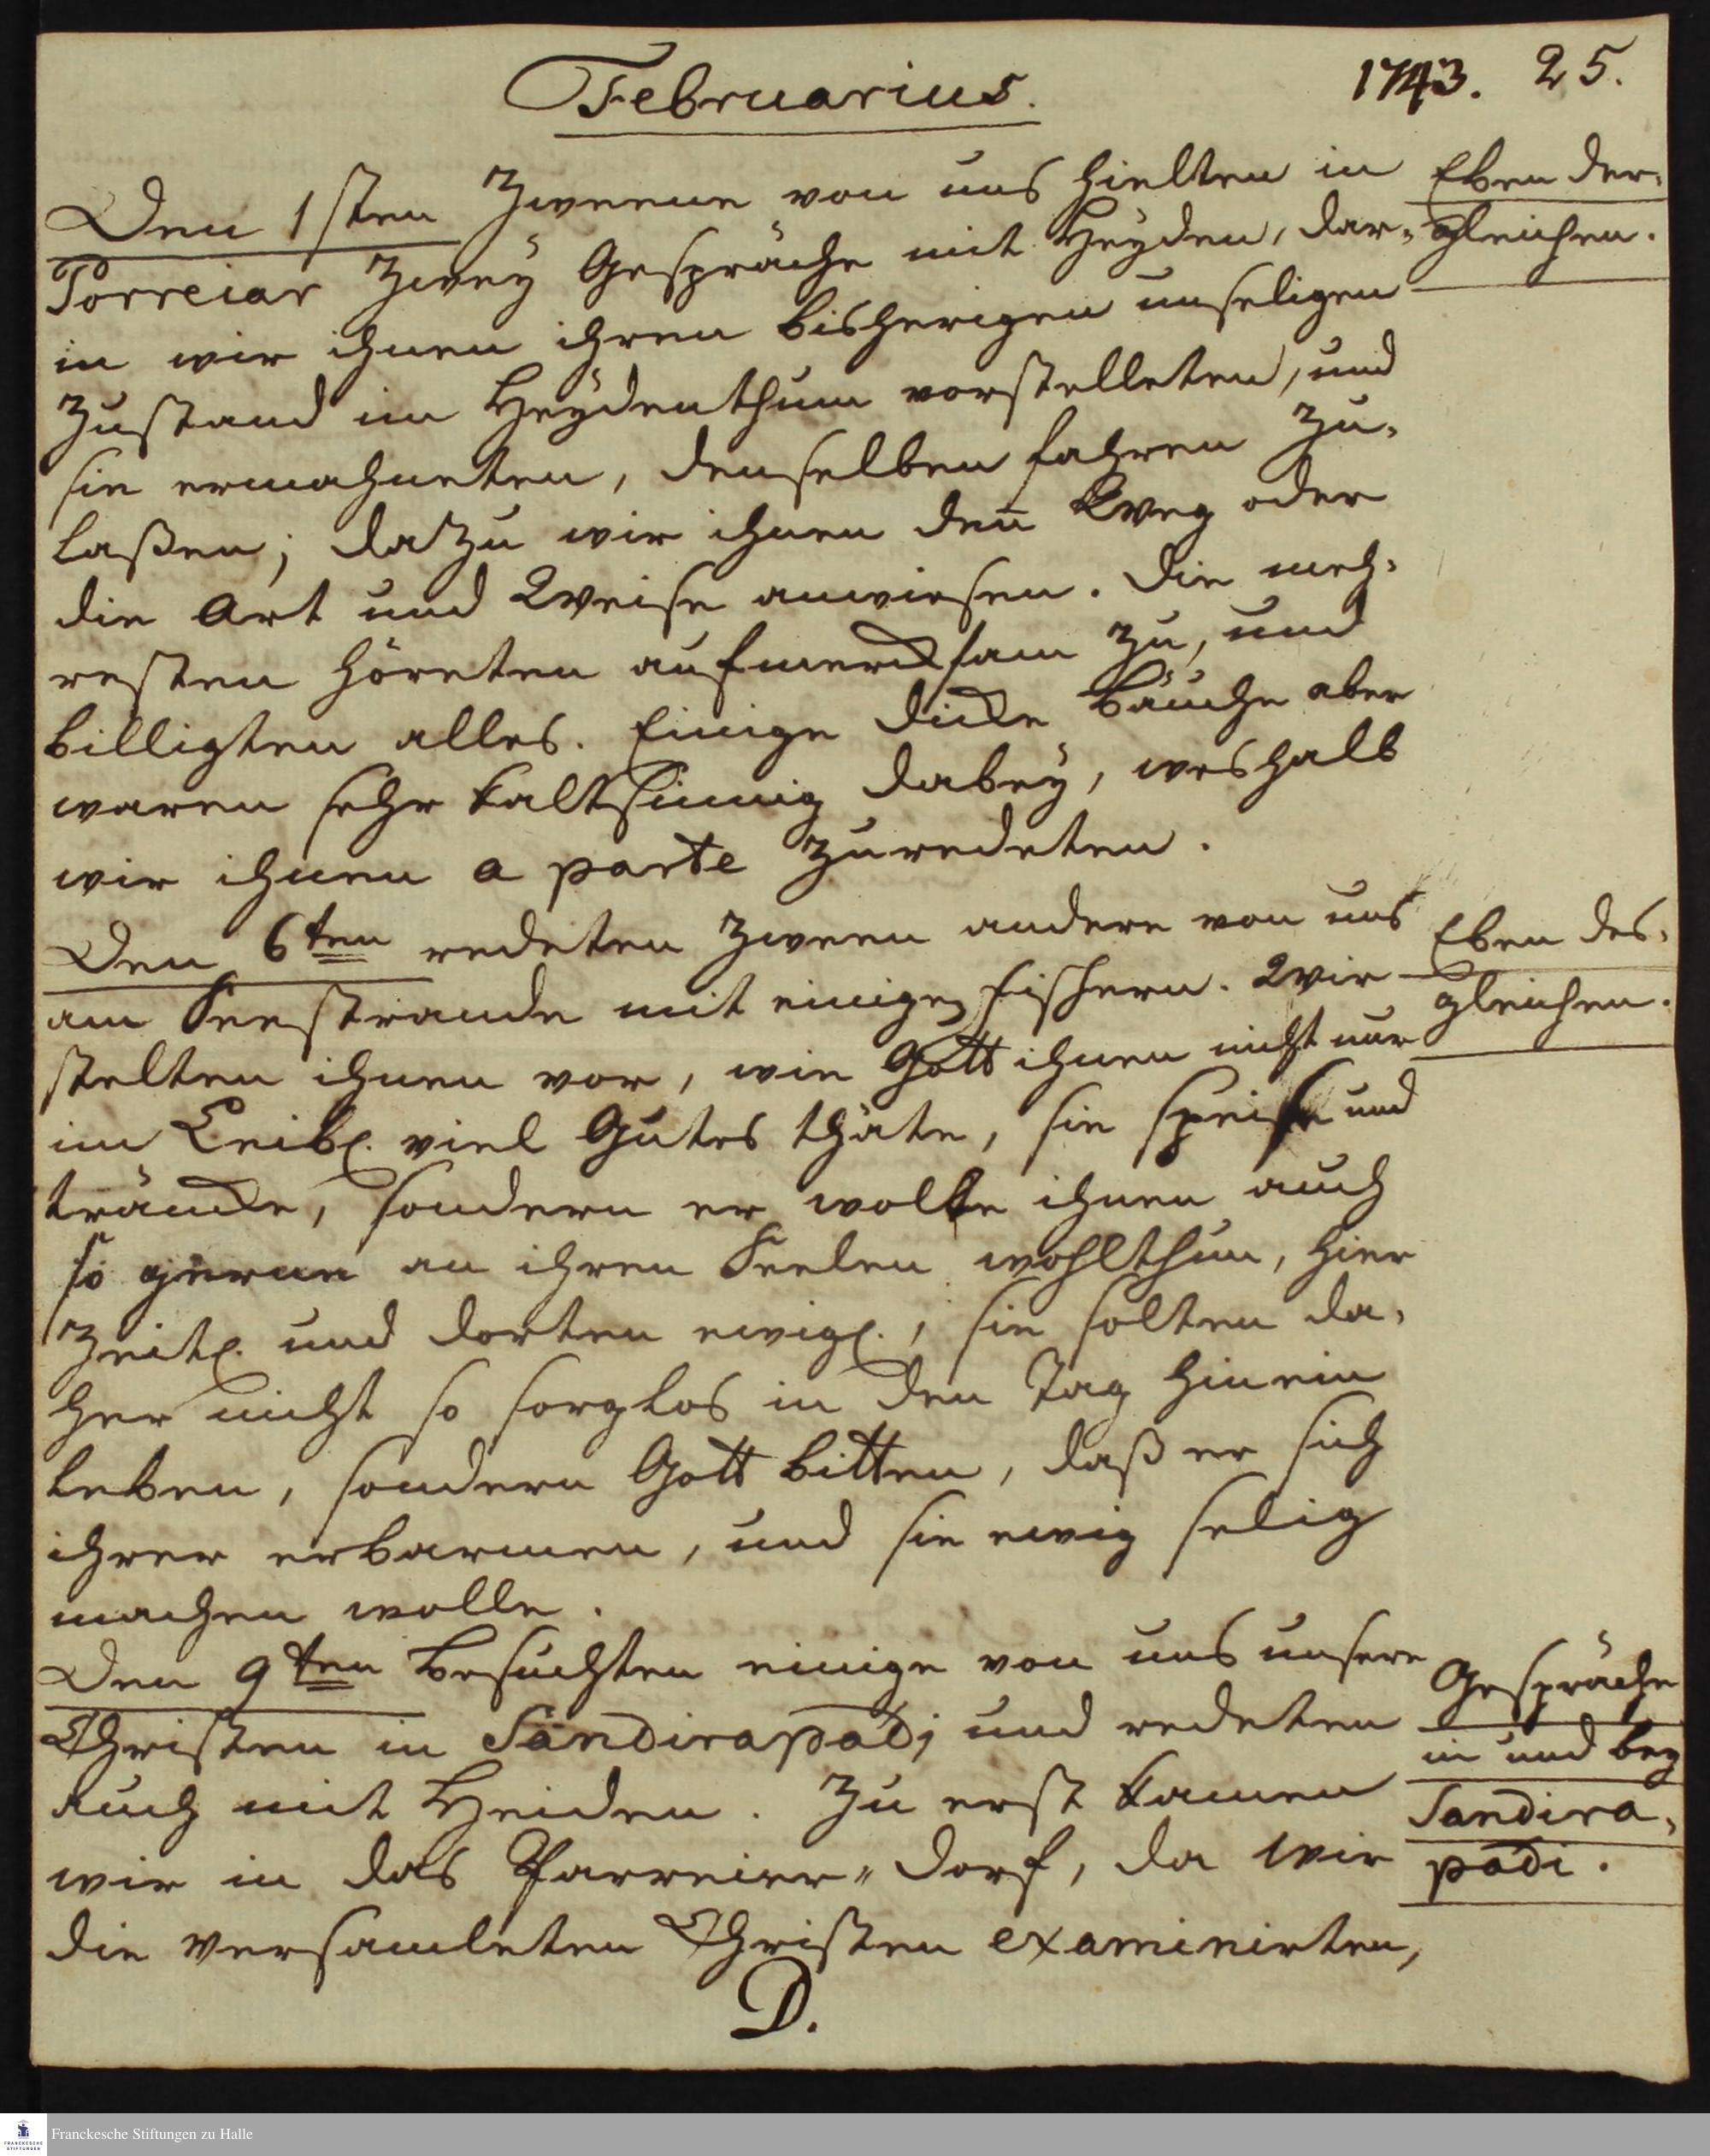 Februarius.
1743. 25.
Den 1sten Zweene von uns hielten in
Eben der-
Porreiar zweÿ Gespräche mit Heÿden, dar-
gleichen.
in wir ihnen ihren bisherigen unseligen
Zustand im Heÿdenthum vorstelleten, und
sie ermahneten, denselben fahren zu-
laßen; dazu wir ihnen den Weg oder
die Art und Weise anwiesen. Die meh-
resten höreten aufmercksam zu, und
billigten alles. Einige dicke Bäuche aber
waren sehr kaltsinnig dabeÿ, weshalb
wir ihnen a parte zuredeten.
Den 6ten redeten zween andere von uns
Eben des-
am Seestrande mit einigen Fischern. Wir
gleichen.
stelten ihnen vor, wie Gott ihnen nicht nur
im Leibl. viel Gutes thäte, sie speise und
träncke, sondern er wolle ihnen auch
so gerne an ihren Seelen wohlthun, hier
zeitl. und dorten ewigl.; sie solten da-
her nicht so sorglos in den Tag hinein
leben, sondern Gott bitten, daß er sich
ihrer erbarmen, und sie ewig selig
machen wolle.
Den 9ten besuchten einige von uns unsere
Gespräche
Christen in Sandirapadi und redeten
in und bey
auch mit Heiden. Zu erst kamen
Sandira-
wir in das Parreier-dorf, da wir
padi.
die versamleten Christen examinirten,
D.
Franckesche Stiftungen zu Halle
FRANCKESCHE
STIFTUNGEN